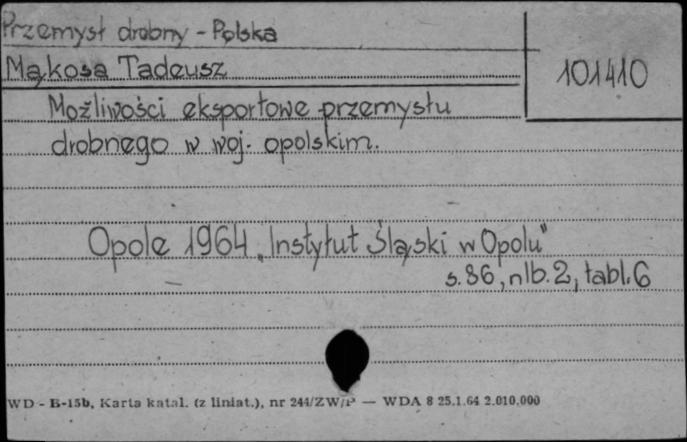 Przemysł drobny - Polska
Mąkosa Tadeusz
101410
Możliwości eksportowe przemysłu
drobnego w woj. opolskim.
Opole 1964 „Instytut Śląski w Opolu"
s. 86, nlb. 2, tabl. 6
WD - B-15b, Karta katal. (z liniat.), nr 244/ZW/P — WDA 8 25.1.64 2.010.000